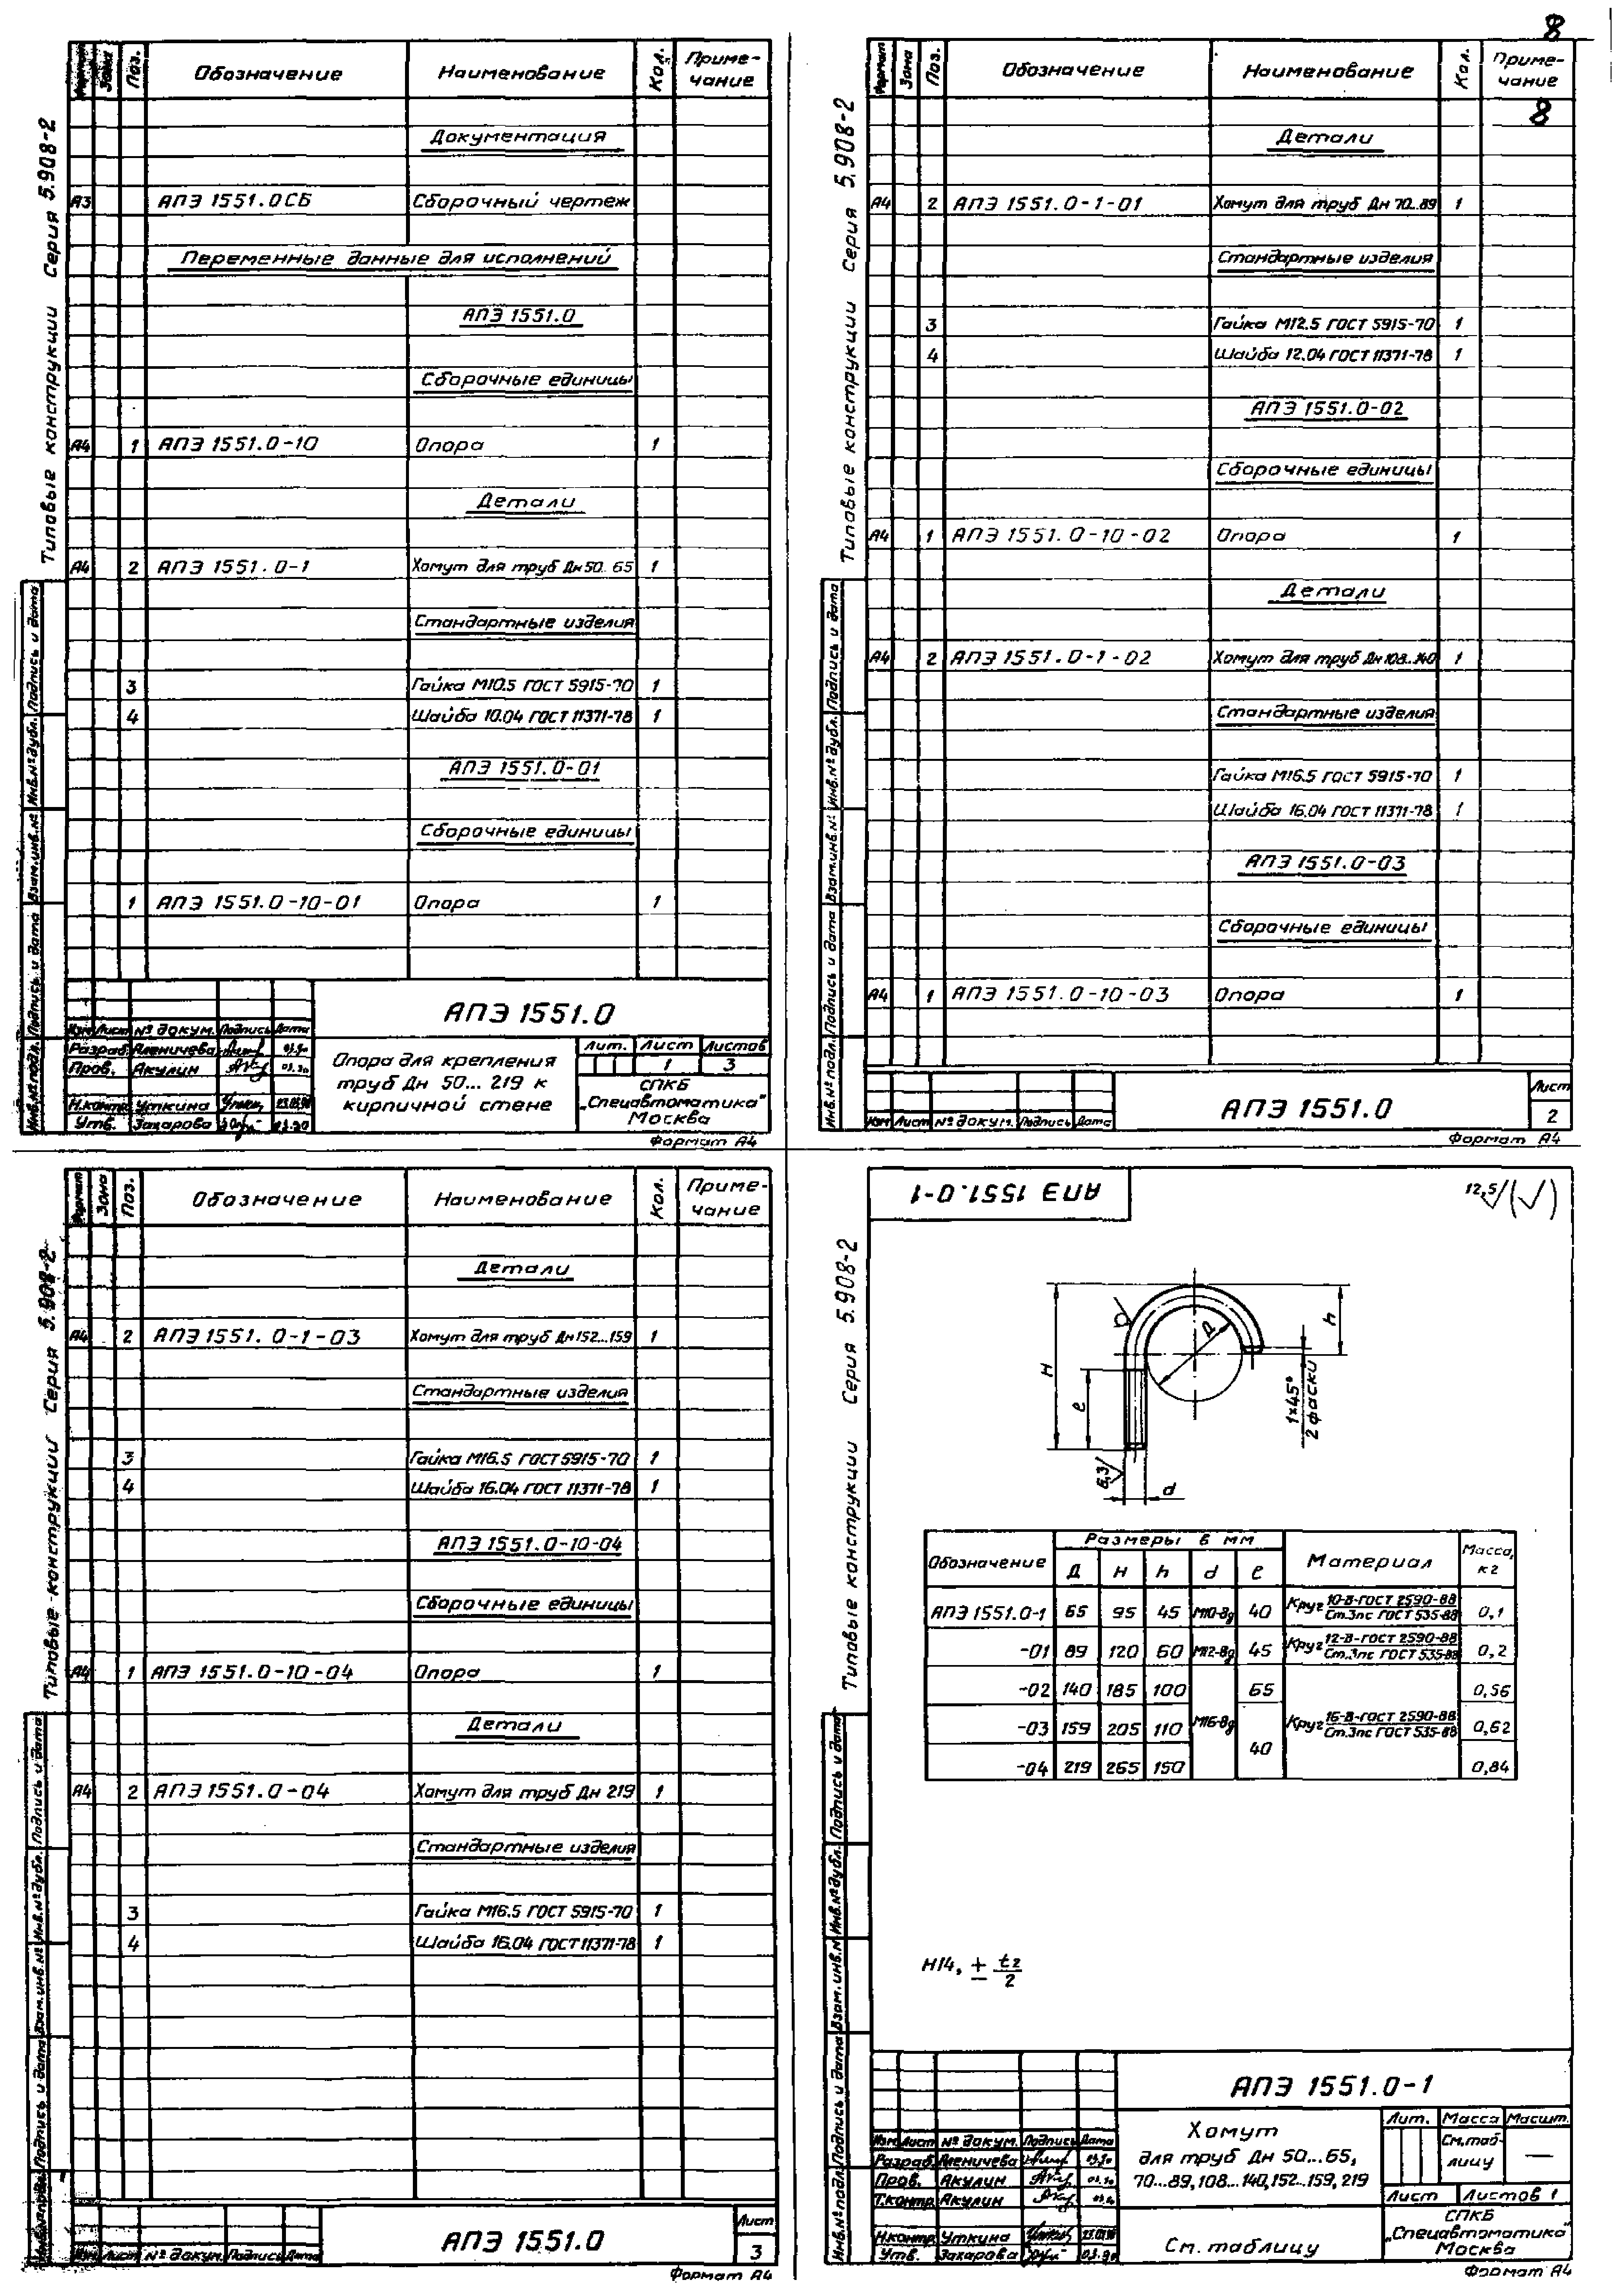 8
Типовые конструкции Серия 5.908-2
Формат Зона Поз. Обозначение Наименование Кол. Приме-
чание
Документация
А3 АПЭ 1551.0СБ Сборочный чертеж
Переменные данные для исполнений
АПЭ 1551.0
Сборочные единицы
А4 1 АПЭ 1551.0-10 Опора 1
Детали
А4 2 АПЭ 1551.0-1 Хомут для труб Дн 50..65 1
Стандартные изделия
3 Гайка М10.5 ГОСТ 5915-70 1
4 Шайба 10.04 ГОСТ 11371-78 1
АПЭ 1551.0-01
Сборочные единицы
1 АПЭ 1551.0-10-01 Опора 1
Инв.№ подл. Подпись и дата Взам.инв.№ Инв.№ дубл. Подпись и дата
АПЭ 1551.0
Изм Лист № докум. Подпись Дата
Разраб. Аленичева 03.90
Пров. Акулин 03.90
Н.контр. Уткина 23.03.90
Утв. Захарова 03.90
Опора для крепления
труб Дн 50... 219 к
кирпичной стене
Лит. Лист Листов
1 3
СПКБ
„Спецавтоматика"
Москва
Формат А4
Типовые конструкции Серия 5.908-2
Формат Зона Поз. Обозначение Наименование Кол. Приме-
чание
8
Детали
А4 2 АПЭ 1551.0-1-01 Хомут для труб Дн 70...89 1
Стандартные изделия
3 Гайка М12.5 ГОСТ 5915-70 1
4 Шайба 12.04 ГОСТ 11371-78 1
АПЭ 1551.0-02
Сборочные единицы
А4 1 АПЭ 1551.0-10-02 Опора 1
Детали
А4 2 АПЭ 1551.0-1-02 Хомут для труб Дн 108...140 1
Стандартные изделия
Гайка М16.5 ГОСТ 5915-70 1
Шайба 16.04 ГОСТ 11371-78 1
АПЭ 1551.0-03
Сборочные единицы
А4 1 АПЭ 1551.0-10-03 Опора 1
Инв.№ подл. Подпись и дата Взам.инв.№ Инв.№ дубл. Подпись и дата
Изм Лист № докум. Подпись Дата
АПЭ 1551.0
Лист
2
Формат А4
Типовые конструкции Серия 5.908-2
Формат Зона Поз. Обозначение Наименование Кол. Приме-
чание
Детали
А4 2 АПЭ 1551.0-1-03 Хомут для труб Дн 152...159 1
Стандартные изделия
3 Гайка М16.5 ГОСТ 5915-70 1
4 Шайба 16.04 ГОСТ 11371-78 1
АПЭ 1551.0-10-04
Сборочные единицы
А4 1 АПЭ 1551.0-10-04 Опора 1
Детали
А4 2 АПЭ 1551.0-04 Хомут для труб Дн 219 1
Стандартные изделия
3 Гайка М16.5 ГОСТ 5915-70 1
4 Шайба 16.04 ГОСТ 11371-78 1
Инв.№ подл. Подпись и дата Взам.инв.№ Инв.№ дубл. Подпись и дата
Изм Лист № докум. Подпись Дата
АПЭ 1551.0
Лист
3
Формат А4
Типовые конструкции Серия 5.908-2
АПЭ 1551.0-1
12,5 (√)
H
ℓ
Д
h
1×45°
2 фаски
6,3
d
Обозначение Размеры в мм Материал Масса,
кг
Д H h d ℓ
АПЭ 1551.0-1 65 95 45 М10-8g 40 Круг 10-В-ГОСТ 2590-88 / Ст.3пс ГОСТ 535-88 0,1
-01 89 120 60 М12-8g 45 Круг 12-В-ГОСТ 2590-88 / Ст.3пс ГОСТ 535-88 0,2
-02 140 185 100 65 0,56
-03 159 205 110 М16-8g 40 Круг 16-В-ГОСТ 2590-88 / Ст.3пс ГОСТ 535-88 0,62
-04 219 265 150 0,84
H14, ± t2/2
Инв.№ подл. Подпись и дата Взам.инв.№ Инв.№ дубл. Подпись и дата
АПЭ 1551.0-1
Изм Лист № докум. Подпись Дата
Разраб. Аленичева 03.90
Пров. Акулин 03.90
Т.контр. Акулин
Н.контр. Уткина 23.03.90
Утв. Захарова 03.90
Хомут
для труб Дн 50...65,
70...89, 108...140, 152...159, 219
Лит. Масса Масшт.
См.таб-
лицу —
Лист Листов 1
См. таблицу
СПКБ
„Спецавтоматика"
Москва
Формат А4